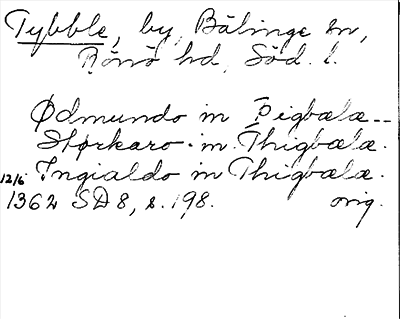 Tybble, by, Bälinge sn,
Rönö hd, Söd. l.
Ødmundo in Þigbælæ--
Størkaro in Thigbælæ.
12/6 Ingialdo in Thigbælæ.
1362 SD 8, s. 198. orig.